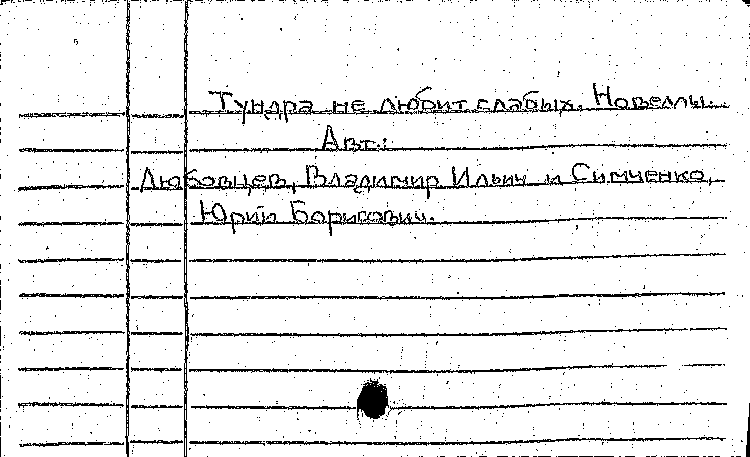 Тундра не любит слабых. Новеллы.
Авт.:
Любовцев, Владимир Ильич и Симченко,
Юрий Борисович.